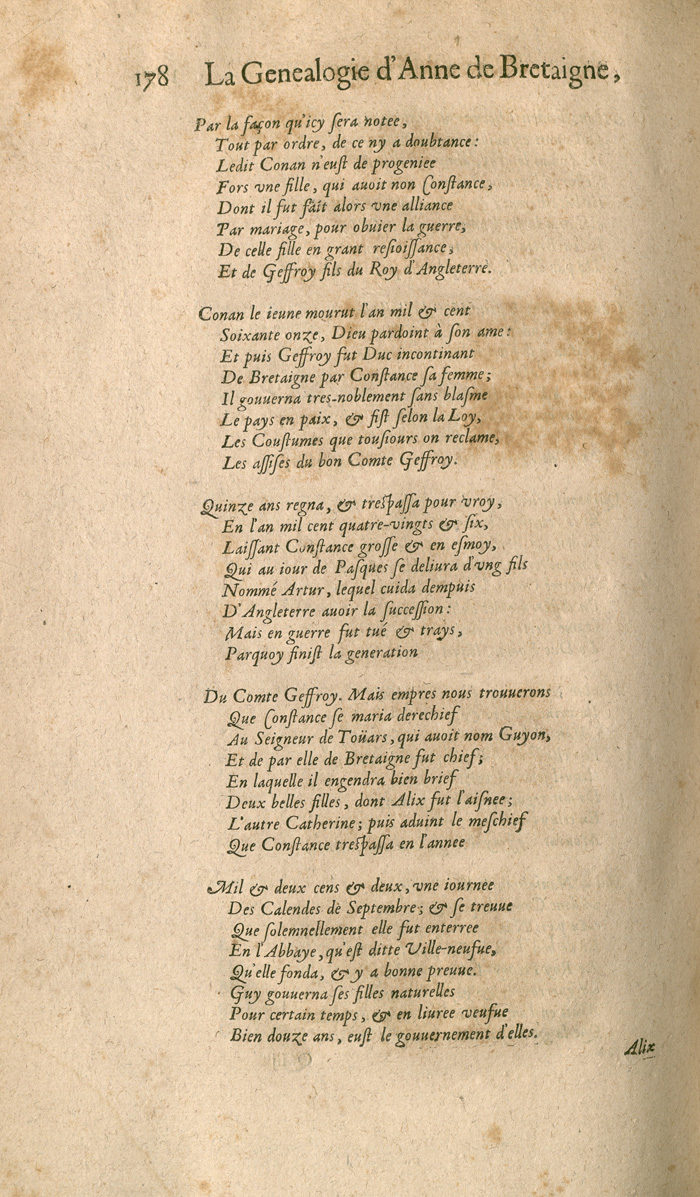 178 La Genealogie d'Anne de Bretaigne,
Par la façon qu'icy ſera notee,
Tout par ordre, de ce ny a doubtance:
Ledit Conan n'euſt de progeniee
Fors vne fille, qui auoit non Conſtance,
Dont il fut fait alors vne alliance
Par mariage, pour obuier la guerre,
De celle fille en grant reſioiſſance,
Et de Geffroy fils du Roy d'Angleterre.
Conan le ieune mourut l'an mil & cent
Soixante onze, Dieu pardoint à ſon ame:
Et puis Geffroy fut Duc incontinant
De Bretaigne par Conſtance ſa femme;
Il gouuerna tres-noblement ſans blaſme
Le pays en paix, & fiſt ſelon la Loy,
Les Couſtumes que touſiours on reclame,
Les aſſiſes du bon Comte Geffroy.
Quinze ans regna, & treſpaſſa pour vroy,
En l'an mil cent quatre-vingts & ſix,
Laiſſant Conſtance groſſe & en eſmoy,
Qui au iour de Paſques ſe deliura d'vng fils
Nommé Artur, lequel cuida dempuis
D'Angleterre auoir la ſucceſſion:
Mais en guerre fut tué & trays,
Parquoy finiſt la generation
Du Comte Geffroy. Mais empres nous trouuerons
Que Conſtance ſe maria derechief
Au Seigneur de Toüars, qui auoit nom Guyon,
Et de par elle de Bretaigne fut chief;
En laquelle il engendra bien brief
Deux belles filles, dont Alix fut l'aiſnee;
L'autre Catherine; puis aduint le meſchief
Que Conſtance treſpaſſa en l'annee
Mil & deux cens & deux, vne iournee
Des Calendes de Septembre; & ſe treuue
Que ſolemnellement elle fut enterree
En l'Abbaye, qu'eſt ditte Ville-neufue,
Qu'elle fonda, & y a bonne preuue.
Guy gouuerna ſes filles naturelles
Pour certain temps, & en liuree veufue
Bien douze ans, euſt le gouuernement d'elles.
Alix